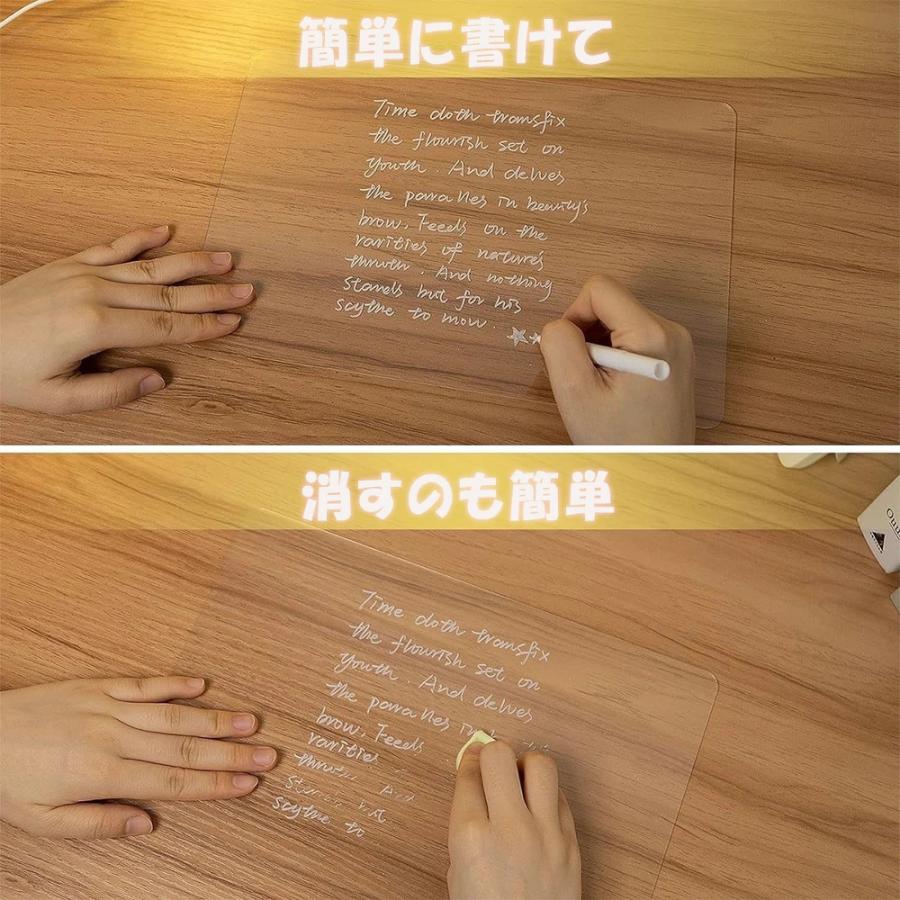 簡単に書けて
Time doth transfix
the flourish set on
youth. And delves
the para lles in beauty's
brow, Feeds on the
rarities of nature's
thruth. And nothing
stands but for his
scythe to mow.
消すのも簡単
Time doth transfix
the flourish set on
youth. And delves
the para lles in
brow, Feeds
rarities
And
but
scythe to